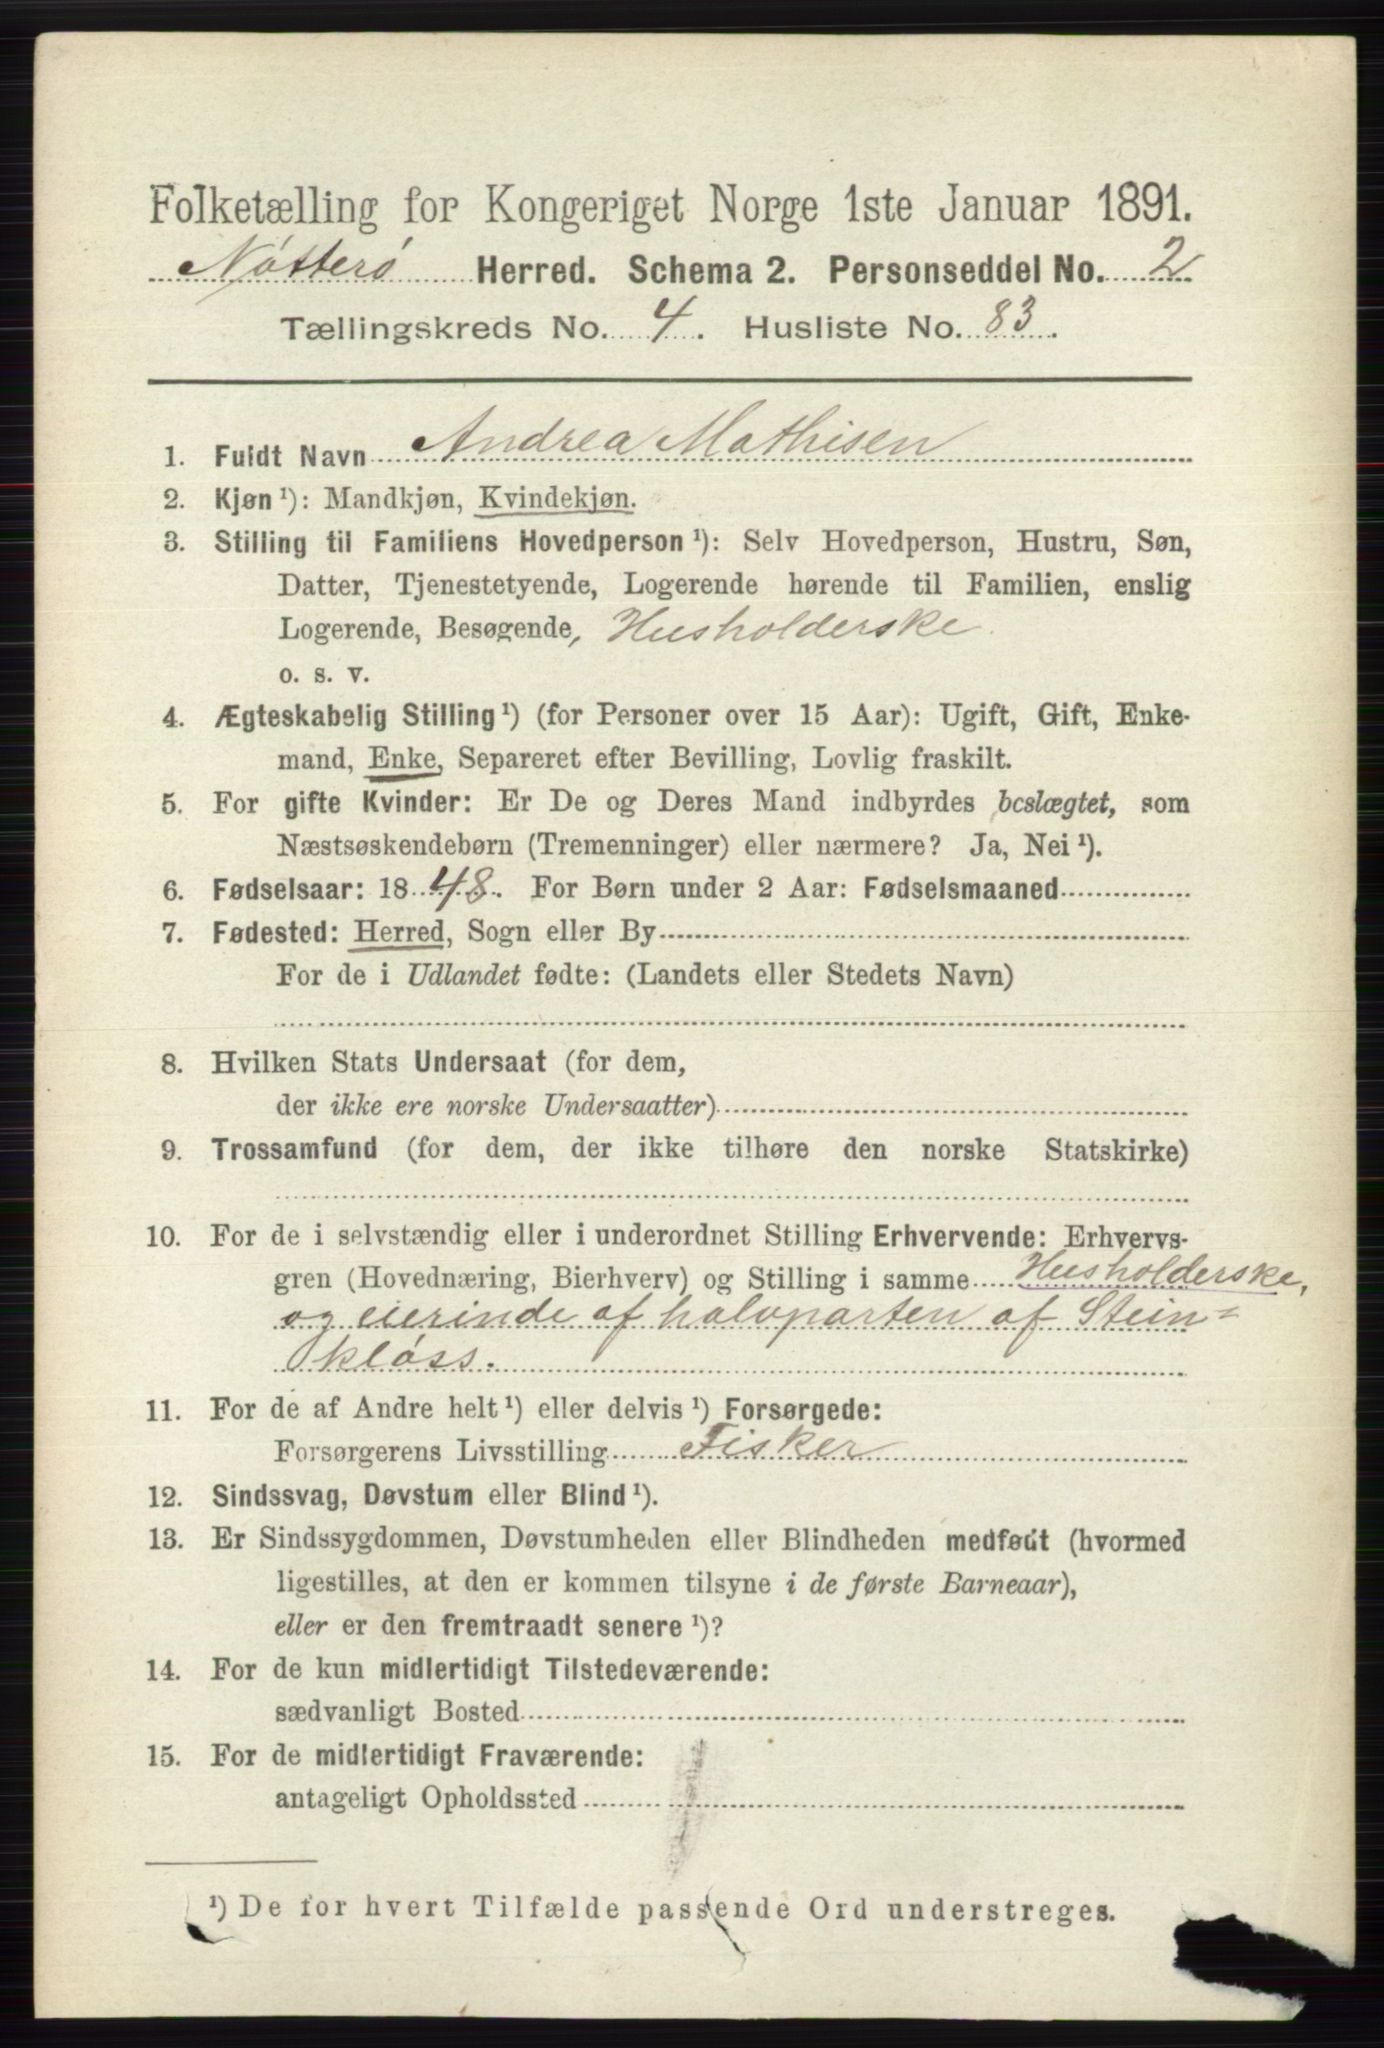 Folketælling for Kongeriget Norge 1ste Januar 1891.
Nøtterø Herred. Schema 2. Personseddel No. 2
Tællingskreds No. 4. Husliste No. 83.
1. Fuldt Navn Andrea Mathisen
2. Kjøn ¹): Mandkjøn, Kvindekjøn.
3. Stilling til Familiens Hovedperson ¹): Selv Hovedperson, Hustru, Søn,
Datter, Tjenestetyende, Logerende hørende til Familien, enslig
Logerende, Besøgende, Husholderske.
o. s. v.
4. Ægteskabelig Stilling ¹) (for Personer over 15 Aar): Ugift, Gift, Enke-
mand, Enke, Separeret efter Bevilling, Lovlig fraskilt.
5. For gifte Kvinder: Er De og Deres Mand indbyrdes beslægtet, som
Næstsøskendebørn (Tremenninger) eller nærmere? Ja, Nei ¹).
6. Fødselsaar: 1848. For Børn under 2 Aar: Fødselsmaaned
7. Fødested: Herred, Sogn eller By
For de i Udlandet fødte: (Landets eller Stedets Navn)
8. Hvilken Stats Undersaat (for dem,
der ikke ere norske Undersaatter)
9. Trossamfund (for dem, der ikke tilhøre den norske Statskirke)
10. For de i selvstændig eller i underordnet Stilling Erhvervende: Erhvervs-
gren (Hovednæring, Bierhverv) og Stilling i samme Husholderske,
og eierinde af halvparten af Stein=
kløss.
11. For de af Andre helt ¹) eller delvis ¹) Forsørgede:
Forsørgerens Livsstilling Fisker
12. Sindssvag, Døvstum eller Blind ¹).
13. Er Sindssygdommen, Døvstumheden eller Blindheden medfødt (hvormed
ligestilles, at den er kommen tilsyne i de første Barneaar),
eller er den fremtraadt senere ¹)?
14. For de kun midlertidigt Tilstedeværende:
sædvanligt Bosted
15. For de midlertidigt Fraværende:
antageligt Opholdssted
¹) De for hvert Tilfælde passende Ord understreges.